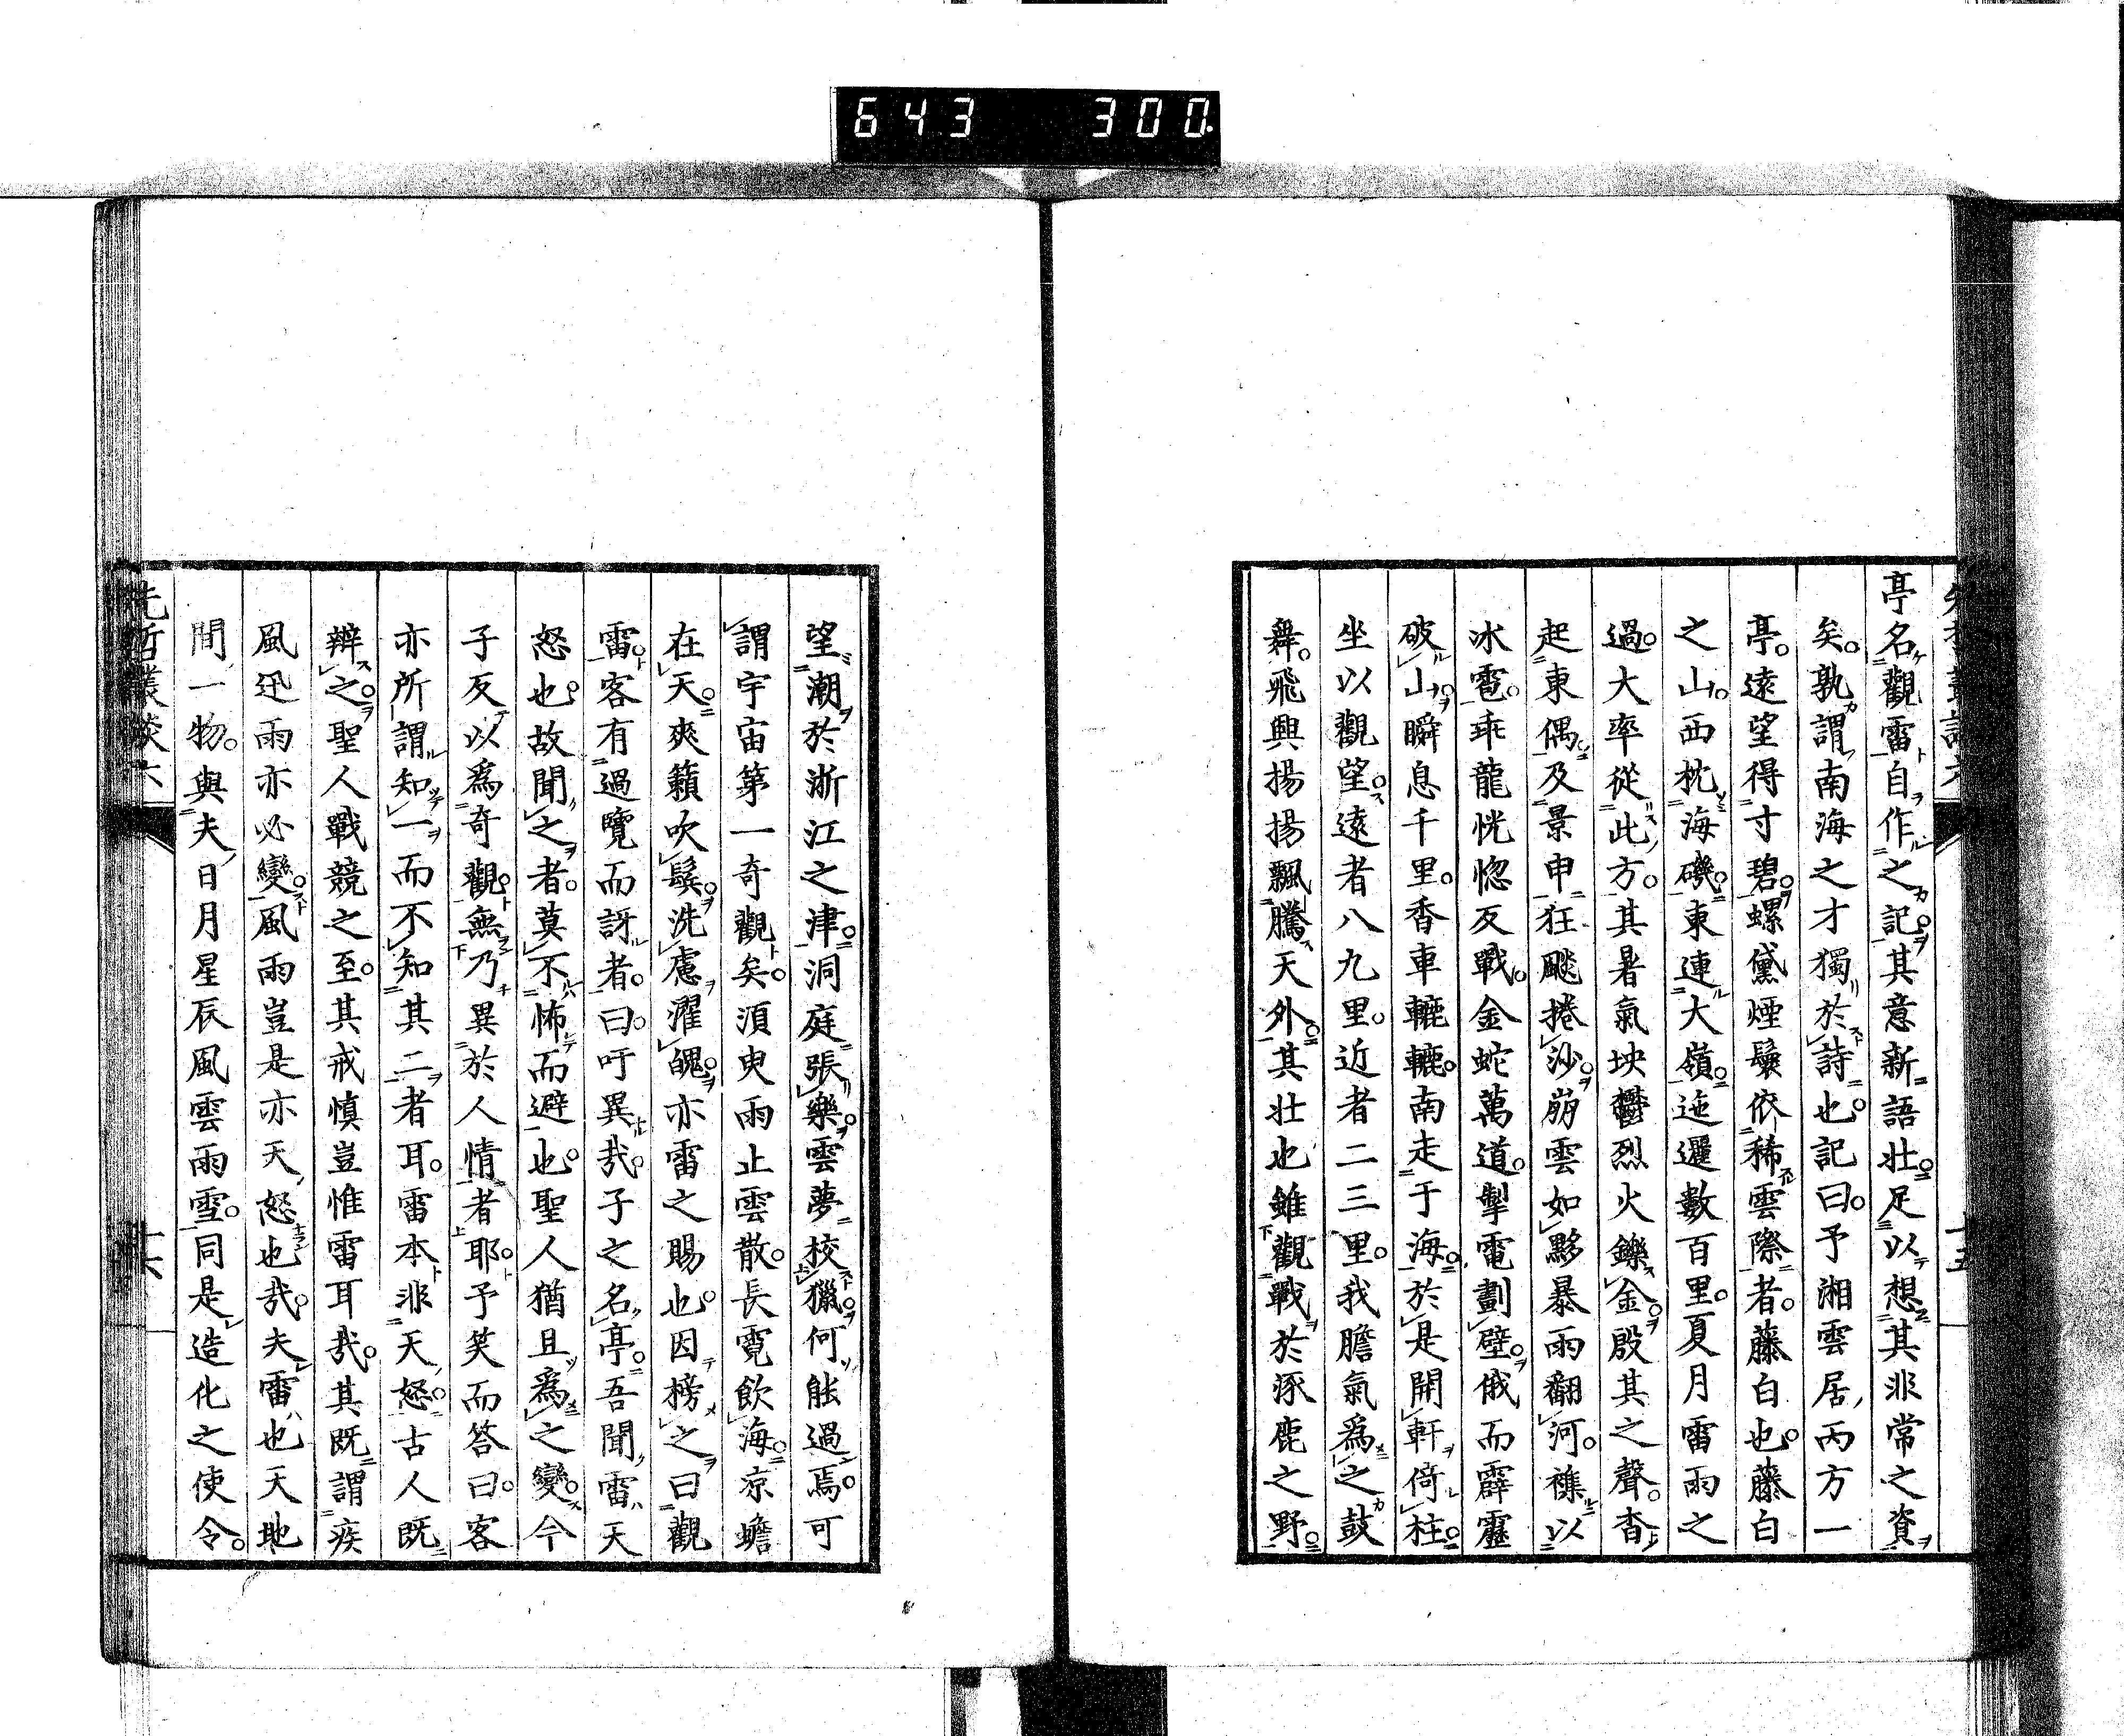 643 300.
亭名觀雷自作之記其意新語壯足以想其非常之資
矣孰謂南海之才獨於詩也記曰予湘雲居丙方一
亭遠望得寸碧螺黛煙鬟依稀雲際者藤白也藤白
之山西枕海磯東連大嶺迤邐數百里夏月雷雨之
過大率從此方其暑氣坱鬱烈火鑠金殷其之聲杳
起東偶及景申狂颷捲沙崩雲如夥暴雨翻河襍以
冰雹乖龍恍惚反戰金蛇萬道掣電劃壁俄而霹靂
破山瞬息千里香車轆轆南走于海於是開軒倚柱
坐以觀望遠者八九里近者二三里我膽氣為之鼓
舞飛興揚揚飄騰天外其壯也雖觀戰於涿鹿之野
望潮於浙江之津洞庭張樂雲夢校獵何能過焉可
謂宇宙第一奇觀矣須臾雨止雲散長霓飲海凉蟾
在天爽籟吹鬂洗慮濯魄亦雷之賜也因榜之曰觀
雷客有過覽而訝者曰吁異哉子之名亭吾聞雷天
怒也故聞之者莫不怖而避也聖人猶且為之變今
子反以為奇觀無乃異於人情者耶予笑而答曰客
亦所謂知一而不知其二者耳雷本非天怒古人既
辨之聖人戰競之至其戒慎豈惟雷耳哉其既謂疾
風迅雨亦必變風雨豈是亦天怒也哉夫雷也天地
間一物與夫日月星辰風雲雨雪同是造化之使令
先哲叢談六
十六